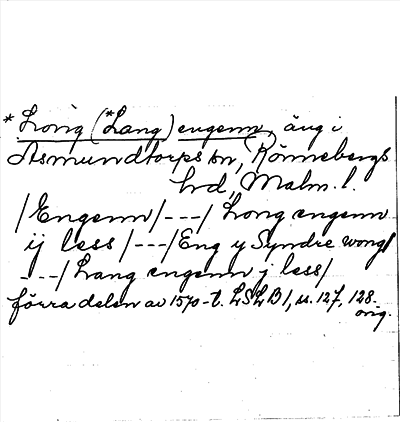 * Long (*Lang) engenn, äng i
Asmundtorps sn, Rönnebergs
hrd, Malm. l.
/Engenn/---/ Long engenn
ij less/---/Eng y Syndre wong/
---/Lang engenn j less/
förra delen av 1570-t. LSLB 1, s. 127, 128.
orig.